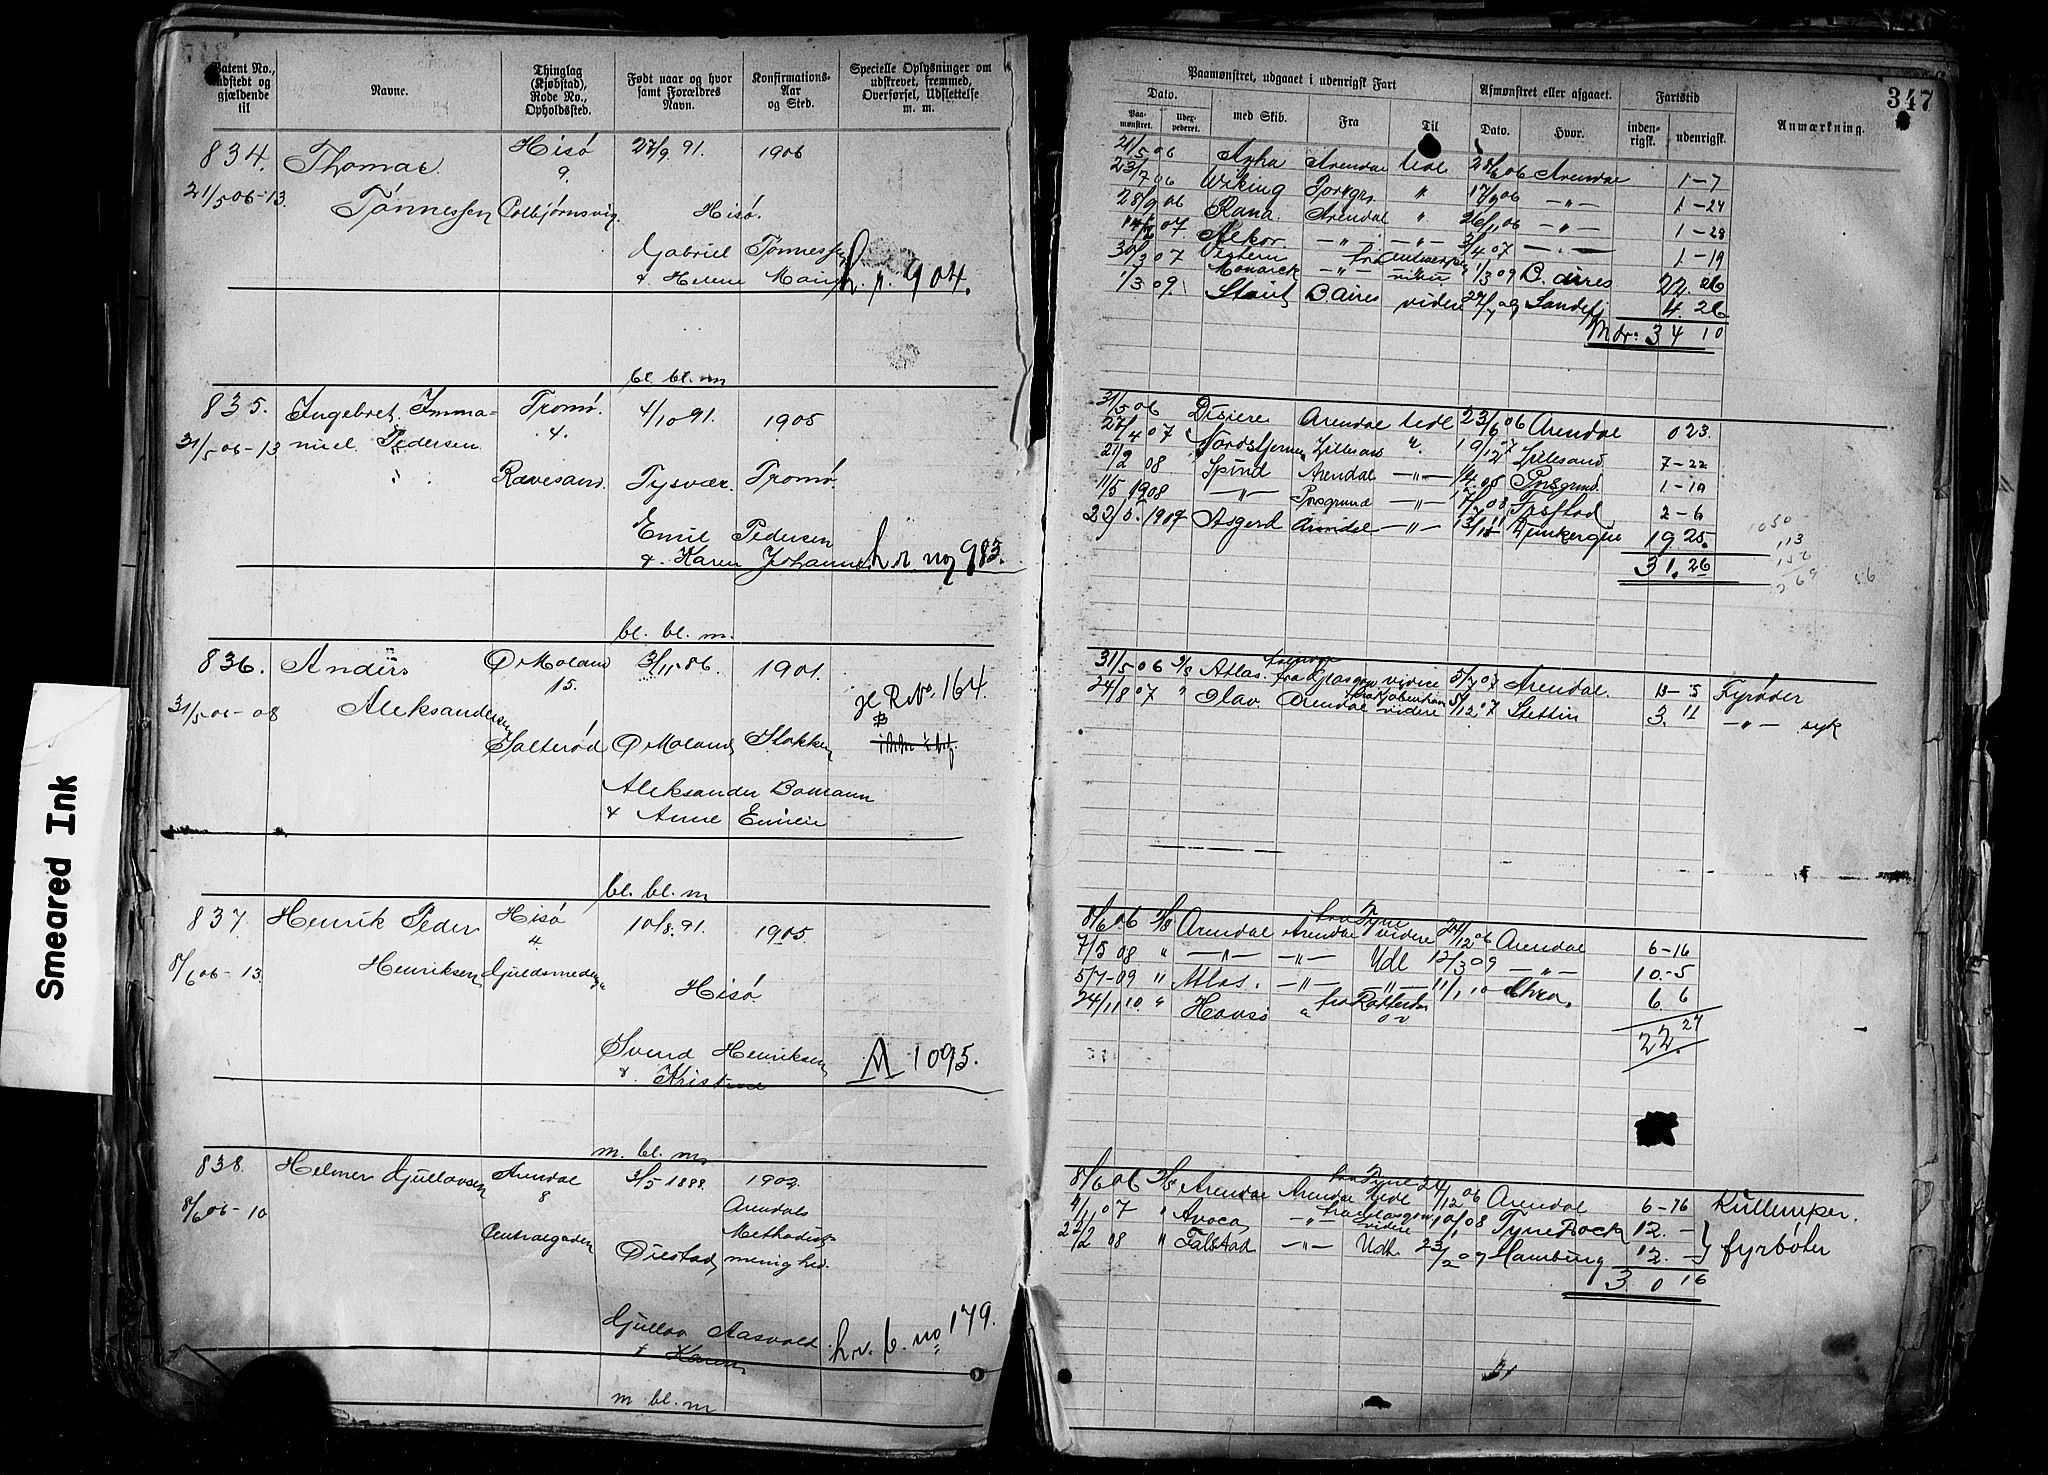 Smeared Ink
Patent No., udstedt og gjældende til
Navne.
Thinglag (Kjøbstad), Rode No., Opholdssted.
Født naar og hvor samt Forældres Navn.
Konfirmations- Aar og Sted.
Specielle Oplysninger om udskrevet, fremmed, Overførsel, Udslettelse m. m.
834. Thomas Hisø 27/9 91. 1906
9.
21/5 06-13. Tønnessen Colbjørnsvig Hisø.
Gabriel Tønnessen
& Helene Marie h. r. 904.
bl. bl. m
835. Ingebret Imma- Tromø. 4/10 91. 1905
31/5 06-13 nuel Pedersen 4.
Ravesand. Tysvær. Tromø.
Emil Pedersen
& Karen Johanne h. r. no 983.
bl. bl. m.
836. Anders Ø Moland 3/11 86. 1901.
15.
31/5 06-08 Aleksandersen
Salterød Ø Moland Stokken
164.
Aleksander Bomann
& Anne Emilie
bl. bl. m
837. Henrik Peder Hisø 10/8. 91. 1905.
4
8/6 06-13. Henriksen Guldsmeden
Hisø
Svend Henriksen A 1095.
& Kristine
m. bl. m
838. Helmer Gjullovsen Arendal 3/5 1888. 1903.
8
8/6 06-10 Arendals
Centralgaden Methodist-
Øiestad menighed.
Gjullov Aasvold h. r. b. no 179.
& Karen
m bl. m
347
Paamønstret, udgaaet i udenrigsk Fart
Afmønstret eller afgaaet.
Fartstid
Anmærkning.
Dato.
Paa- mønstret.
Udex- pederet.
med Skib.
Fra
Til
Dato.
Hvor.
inden- rigsk.
udenrigsk.
21/5 06 Agha Arendal Udl 28/6 06 Arendal 1-7
23/7 06 Wiking Porsgr. " 17/9 06 -"- 1-24
28/9 06 Rana. Arendal " 26/11 06 -"- 1-28
14/2 07 Alkor. -"- -"- 3/4 07 -"- 1-19
30/3 07 Western Monarck -"- fra Antwerpen videre 1/3 09 B. aires 22. 26
1/3 09. Staut B. Aires videre 27/7 09 Sandefj 4. 26
Mdr: 34 10
31/5 06 Désiere Arendal Udl 23/6 06 Arendal 0 23.
27/4 07 Nordstjernen Lillesand " 19/12 07 Lillesand 7-22
21/2 08 Spind Arendal -"- 1/4 08 Porsgrund. 1-10
11/5 1908 -"- Porsgrund -"- 17/7 08 2-6
22/5 1909 Asgerd Arendal -"- Dunkerque 19 25.
31. 26
31/5 06 3/8 Atlas. fra Glasgow videre 5/7 07 Arendal. 13-5 Fyrbøder
24/8 07 " Olav. Arendal fra Kjøbenhavn videre 5/12 07 Stettin 3. 11 -"- syk
8/6 06 3/8 Arendal Arendal fra Tyne videre 24/12 06 Arendal 6-16
7/5 08 " -"- -"- Udl 12/3 09 -"- 10-5
5/7-09 " Atlas. -"- -"- 11/1 10 Chra. 6 6
24/11 10. " Havsø " fra Rotterdam
22. 27
8/6 06 3/8 Arendal Arendal fra Tyne Udl 24/12 06 Arendal 6-16 Kullemper.
4/1 07 " Avoca -"- fra Glasgow videre 10/1 08 Tyne Dock 12. -
22/2 08 " Falstad -"- Udl 23/2 09 Hamburg 12. - } fyrbøter
30 16